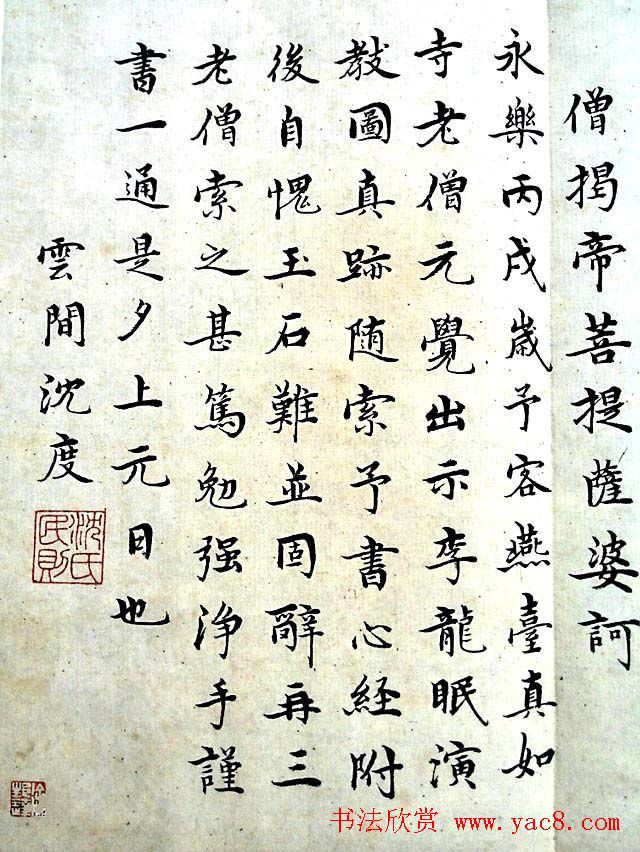 僧揭帝菩提薩婆訶
永樂丙戌歲予客燕臺真如
寺老僧元覺出示李龍眠演
教圖真跡随索予書心經附
後自愧玉石難並固辭再三
老僧索之甚篤勉强淨手謹
書一通是夕上元日也
雲間沈度
沈氏民則
书法欣赏 www.yac8.com